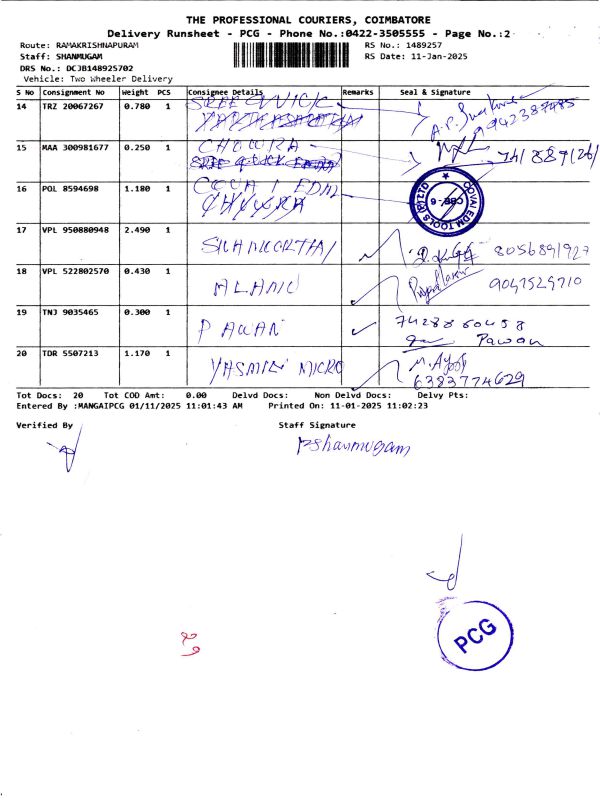 THE PROFESSIONAL COURIERS, COIMBATORE
Delivery Runsheet - PCG - Phone No.:0422-3505555 - Page No.:2
Route: RAMAKRISHNAPURAM
RS No.: 1489257
Staff: SHANMUGAM
RS Date: 11-Jan-2025
DRS No.: DCJB148925702
Vehicle: Two Wheeler Delivery
S No Consignment No Weight PCS Consignee Details Remarks Seal & Signature
14 TRZ 20067267 0.780 1 SREE
9942387485
15 MAA 300981677 0.250 1 CHOWRA
16 POL 8594698 1.180 1
COVAI EDM TOOLS (P) LTD
CBE-6
17 VPL 950880948 2.490 1 8056891927
18 VPL 522802570 0.430 1 9047529710
19 TNJ 9035465 0.300 1 PAWAN 7428860458
Pawan
20 TDR 5507213 1.170 1 YASMIN MICRO
6383774629
Tot Docs: 20 Tot COD Amt: 0.00 Delvd Docs: Non Delvd Docs: Delvy Pts:
Entered By :MANGAIPCG 01/11/2025 11:01:43 AM Printed On: 11-01-2025 11:02:23
Verified By Staff Signature
Pshanmugam
PCG